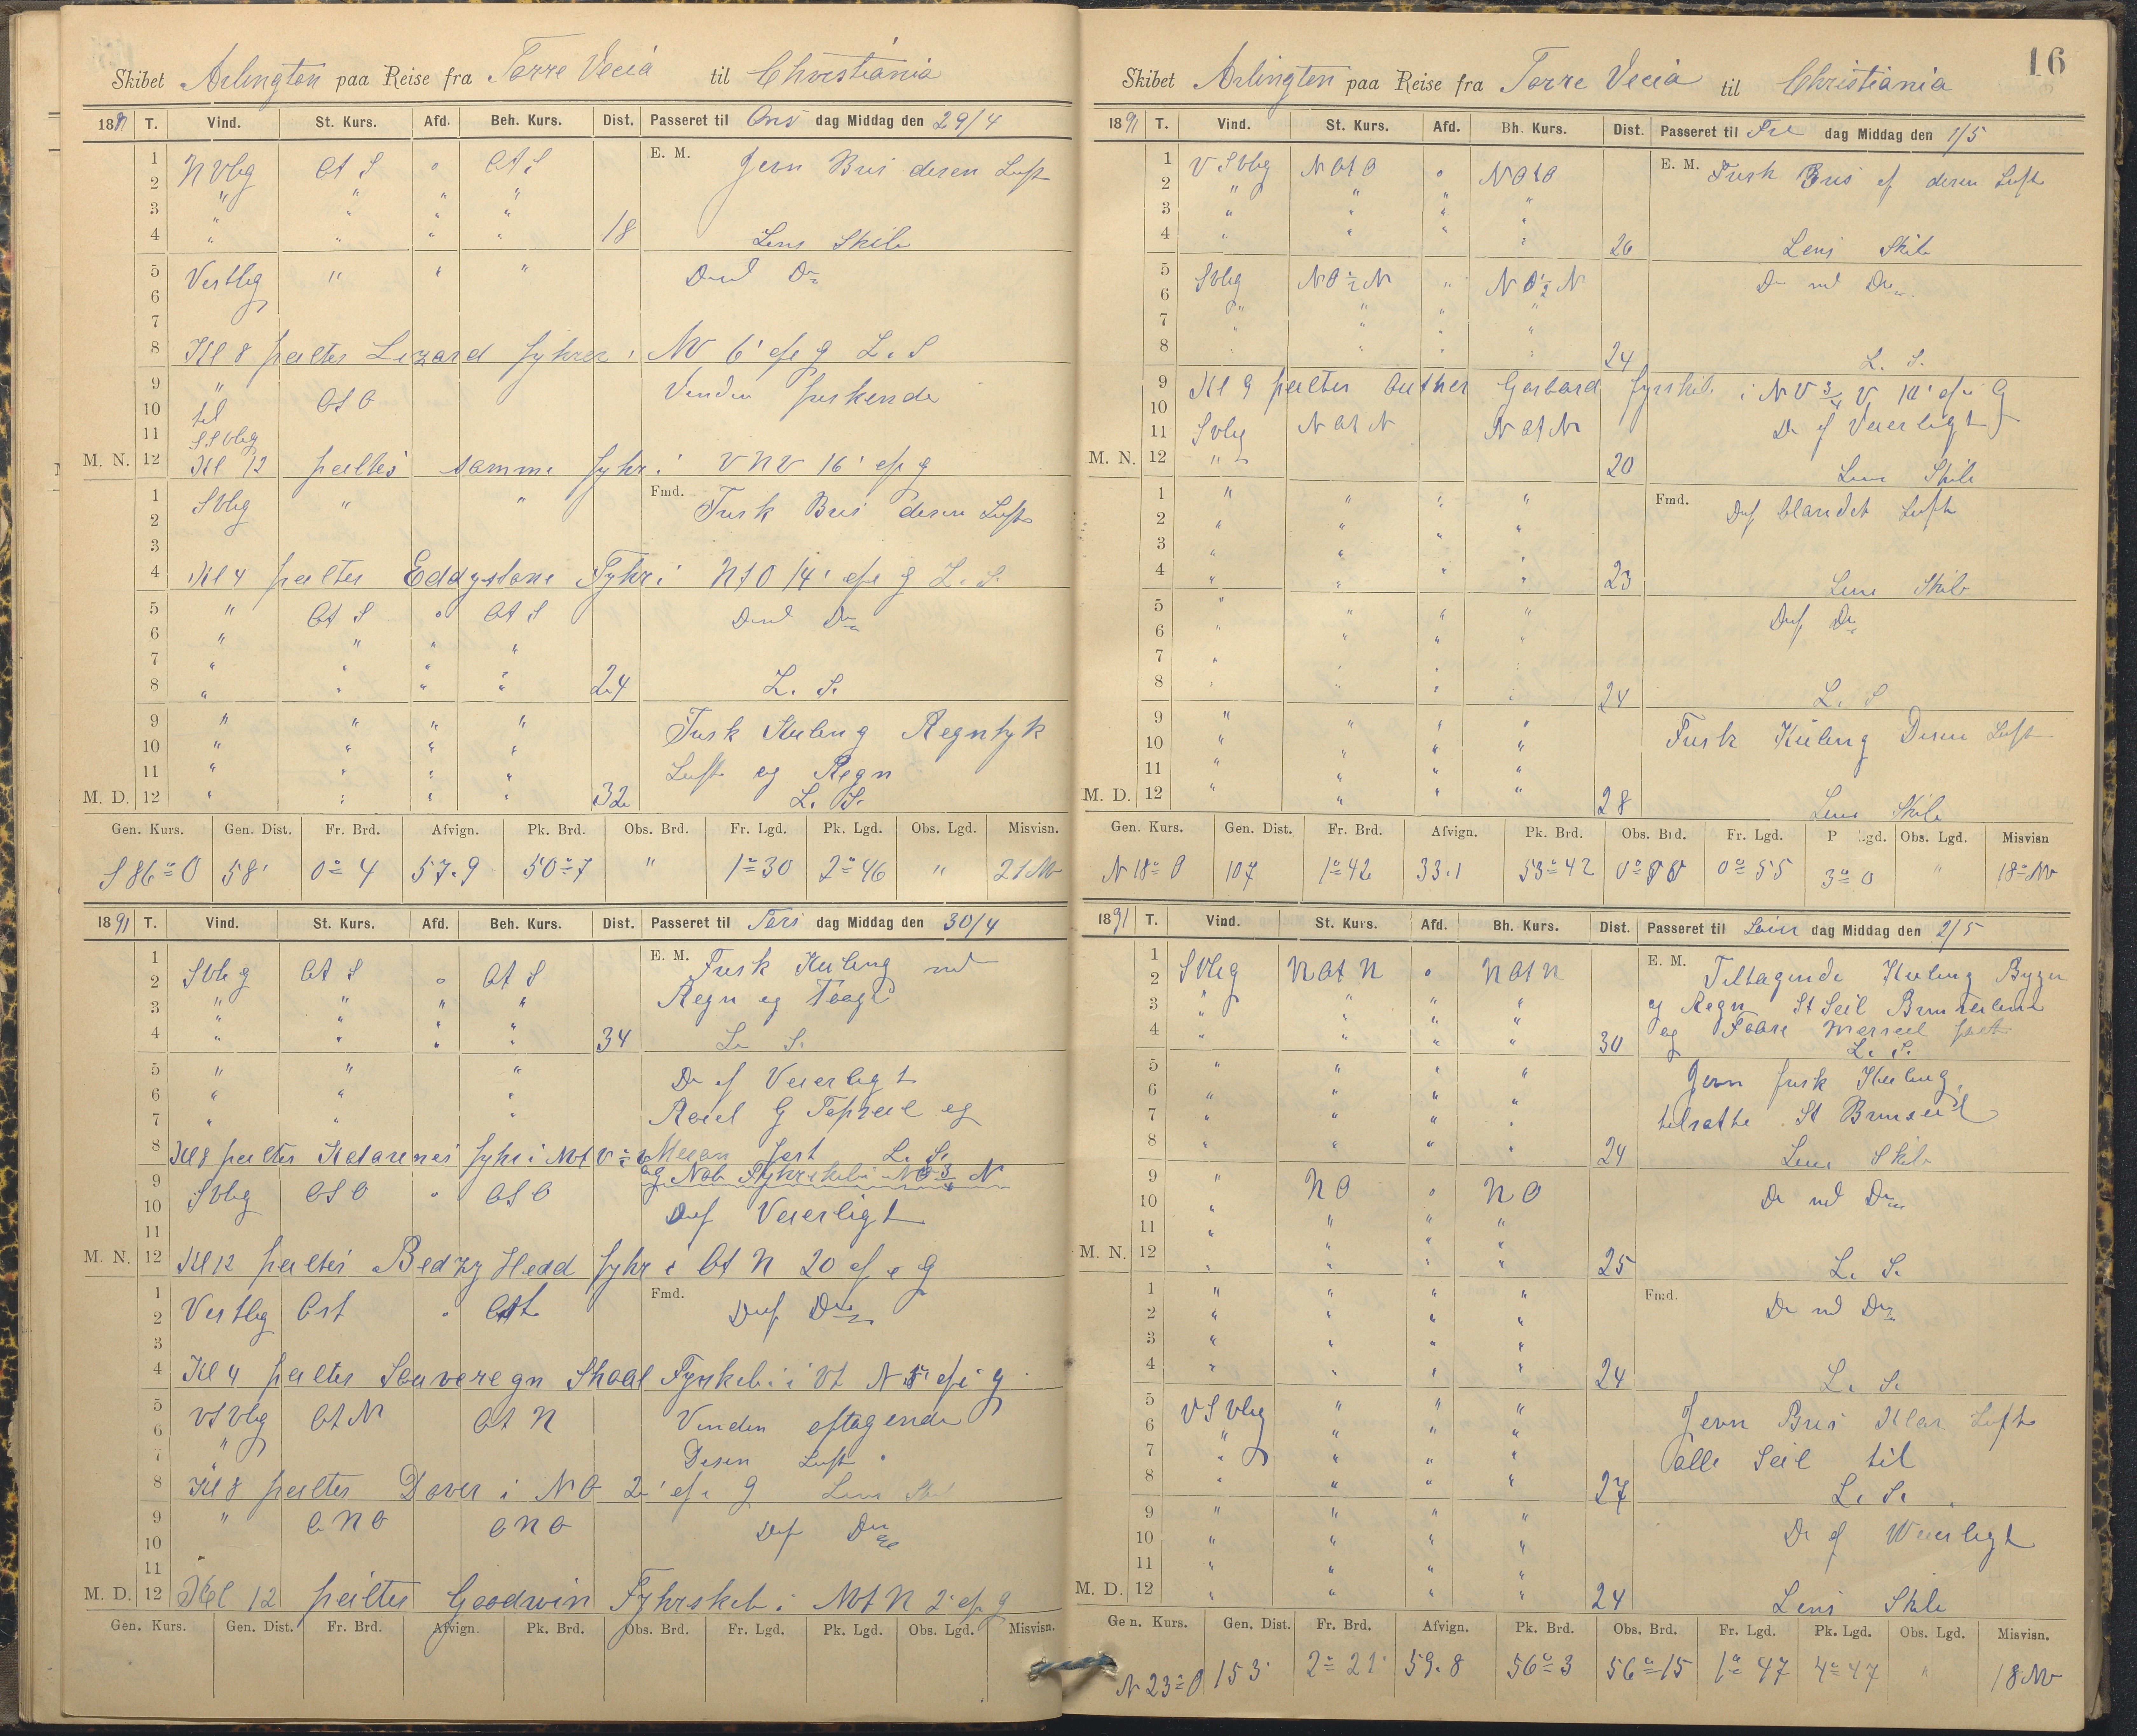 Skibet Arlington paa Reise fra Torre Vecia til Christiania
1891 T. Vind. St. Kurs. Afd. Beh. Kurs. Dist. Passeret til Ons dag Middag den 29/4
1 NVlig Ot S " Ot S E. M. Jevn Bris disen Luft
2 " " " "
3 " " " "
4 " " " " 18 Lens Skib
5 Vestlig " " " D. md Do
6
7
8 Kl 8 peiltes Lizard fyhr i NV 6' af g L. S
9 " OtO Vinden friskende
10 til
11 SSVlig
M. N. 12 Kl 12 peiltes samme fyhr i VNV 16' af g
1 SVlig " " Fmd. Frisk Bris disen Luft
2
3
4 Kl 4 peiltes Eddystone Fyhr i NtO 14' af g L. S.
5 " Ot S " Ot S D. md Do
6 " " " "
7 " " " "
8 " " " " 24 L. S.
9 " " " " Frisk Kuling Regntyk
10 " " " " Luft og Regn
11 " " " "
M. D. 12 " " " " 32 L. S.
Gen. Kurs. Gen. Dist. Fr. Brd. Afvign. Pk. Brd. Obs. Brd. Fr. Lgd. Pk. Lgd. Obs. Lgd. Misvisn.
S 86° O 58' 0° 4 57.9 50° 7 " 1° 30 2° 46 " 21 NV
1891 T. Vind. St. Kurs. Afd. Beh. Kurs. Dist. Passeret til Tors dag Middag den 30/4
1 E. M. Frisk Kuling md
2 SVlig Ot S " Ot S Regn og Taage
3 " " " "
4 " " " " 34 L. S.
5 " " " D. af Veierligt
6 " " G Topseil og
7 " " "
8 Kl 8 peiltes fyhr i Mesan fast L. S.
og Nab Fyhrskib i NO 3/4 N
9 SVlig OSO " OSO D. af Veierligt
10
11
M. N. 12 Kl 12 peiltes Head fyhr i Ot N 20 af g
1 Vestlig Ost " Ost Fmd. D. af Do
2
3
4 Kl 4 peiltes Souveregn Shoal Fyrskib i Vt N 5' af g
5 VSVlig OtN OtN Vinden aftagende
6 "
7 " Disen Luft
8 Kl 8 peiltes Dover i NO 2' af g Lens Skib
9 " ONO ONO D. af Do
10
11 "
M. D. 12 Kl 12 peiltes Goodwin Fyhrskib i NVt N 2' af g
Gen. Kurs. Gen. Dist. Fr. Brd. Afvign. Pk. Brd. Obs. Brd. Fr. Lgd. Pk. Lgd. Obs. Lgd. Misvisn.
16
Skibet Arlington paa Reise fra Torre Vecia til Christiania
1891 T. Vind. St. Kurs. Afd. Bh. Kurs. Dist. Passeret til Fre dag Middag den 1/5
1 VSVlig NOtO " NOtO E. M. Frisk Bris af disen Luft
2 " " " "
3 " " " "
4 " " " " 26 Lens Skib
5 SVlig NO 1/2 N " NO 1/2 N D. md Do
6 " " "
7 " " " "
8 " " " " 24 L. S.
9 Kl 9 peiltes Outher Gabbard fyrskib i NV 3/4 V 10' af g
10 D. af Veierligt
11 SVlig NOtN NOtN
M. N. 12 " 20 Lens Skib
1 " " " " Fmd. D. af blandet Luft
2 " "
3 " " " "
4 " " " " 23 Lens Skib
5 " " " " D. af Do
6 " " " "
7 " " "
8 " " " " 24 L. S
9 " " " " Frisk Kuling Disen Luft
10 " " " "
11 " " " "
M. D. 12 " " " " 28 Lens Skib
Gen. Kurs. Gen. Dist. Fr. Brd. Afvign. Pk. Brd. Obs. Brd. Fr. Lgd. P lgd. Obs. Lgd. Misvisn
N 18° O 107 1° 42 33.1 53° 42 0° 55 3° 0 " 18° NV
1891 T. Vind. St. Kurs. Afd. Bh. Kurs. Dist. Passeret til dag Middag den 2/5
1 E. M. Tiltagende Kuling Byger
2 SVlig NOtN " NOtN og Regn St Seil
3 " " " " og Fore Merseil fast
4 " " " " 30 L. S.
5 " " " " Jevn frisk Kuling
6 " " " "
7 " " " " tilsatte St Bramseil
8 " " " " 24 Lens Skib
9 " NO " NO D. md Do
10 "
11 " " " "
M. N. 12 " " " " 25 L. S.
1 " " " " Fmd. D. md Do
2 " " " "
3 " " " "
4 " " " " 24 L. S.
5 VSVlig " " " Jevn Bris Klar Luft
6 " " " "
7 " " " " alle Seil til
8 " " " " 27 L. S.
9 " " " " D. af Weierligt
10 " " " "
11 " " " "
M. D. 12 " " " " 24 Lens Skib
Gen. Kurs. Gen. Dist. Fr. Brd. Afvign. Pk. Brd. Obs. Brd. Fr. Lgd. Pk. Lgd. Obs. Lgd. Misvisn.
N 23° O 153' 2° 21' 59.8 56° 3 56° 15 1° 47 4° 47 " 18 NV